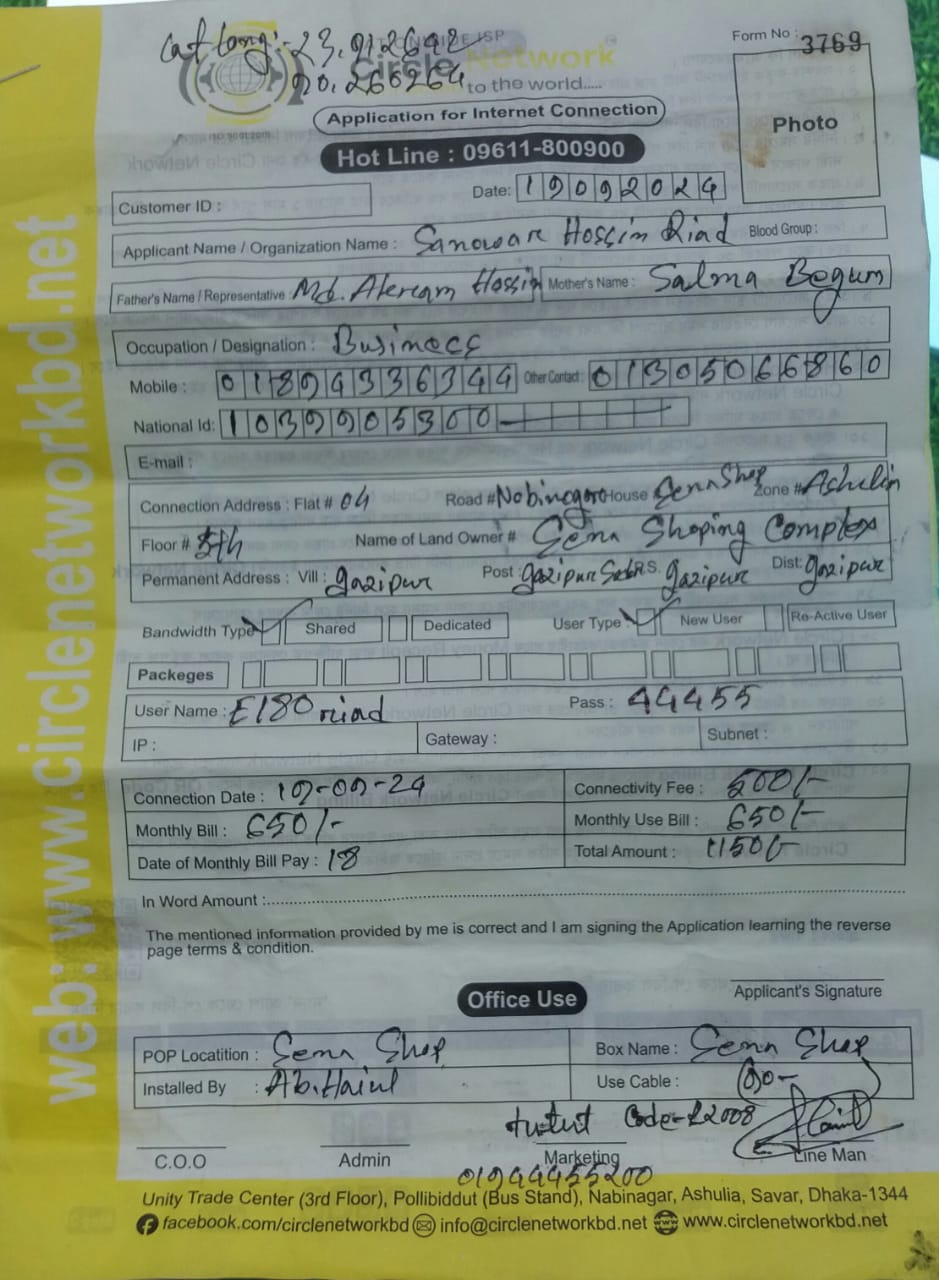 Cat long:- 23.912642
90.260264
Circle Network
to the world.....
Form No : 3769
Photo
Application for Internet Connection
Hot Line : 09611-800900
Date: 19092024
Customer ID :
Applicant Name / Organization Name : Sanowar Hossin Riad Blood Group :
Father's Name / Representative : Md. Akram Hossin Mother's Name : Salma Begum
Occupation / Designation : Business
Mobile : 01894336344 Other Contact : 01305066860
National Id: 1039905300
E-mail :
Connection Address : Flat # 04 Road # Nobinagar House Sena Shop Zone # Ashulia
Floor # 5th Name of Land Owner # Sena Shoping Complex
Permanent Address : Vill : gazipur Post : gazipur Sadar P.S. gazipur Dist: gazipur
Bandwidth Type Shared Dedicated User Type New User Re-Active User
Packeges
User Name : E180 riad Pass : 44455
IP : Gateway : Subnet :
Connection Date : 19-09-24 Connectivity Fee : 500/-
Monthly Bill : 650/- Monthly Use Bill : 650/-
Date of Monthly Bill Pay : 18 Total Amount : 1150/-
In Word Amount :
The mentioned information provided by me is correct and I am signing the Application learning the reverse
page terms & condition.
Applicant's Signature
Office Use
POP Locatition : Sena Shop Box Name : Sena Shop
Installed By : Use Cable :
Code-22008
C.O.O Admin Marketing Line Man
01944455200
Unity Trade Center (3rd Floor), Pollibiddut (Bus Stand), Nabinagar, Ashulia, Savar, Dhaka-1344
facebook.com/circlenetworkbd info@circlenetworkbd.net www.circlenetworkbd.net
web: www.circlenetworkbd.net